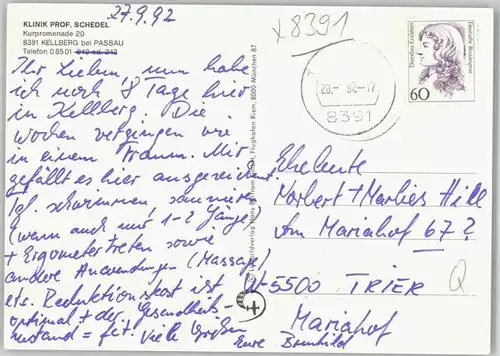 27.9.92
x 8391
KLINIK PROF. SCHEDEL
Kurpromenade 20
8391 KELLBERG bei PASSAU
Telefon 0 85 01
Ihr Lieben, nun habe
ich noch 8 Tage hier
in Kellberg. Die
Wochen vergingen wie
in einem Traum. Mir
gefällt es hier ausgezeichnet.
schwimmen, saunieren
(wenn auch nur 1-2 Gänge)
+ Ergometertreten sowie
andere Anwendungen (Massage
etc. Reduktionskost ist
optimal + der Gesundheits-
zustand = fit. Viele Grüßen
Eure Brunhild
Luftbildverlag Hans Bertram GmbH, Flughafen Riem, 8000 München 87
28.- 92-17
8391
Dorothea Erxleben
Deutsche Bundespost
60
Eheleute
Norbert + Marlies Hill
Am Mariahof 67?
W-5500 TRIER
Mariahof
Q